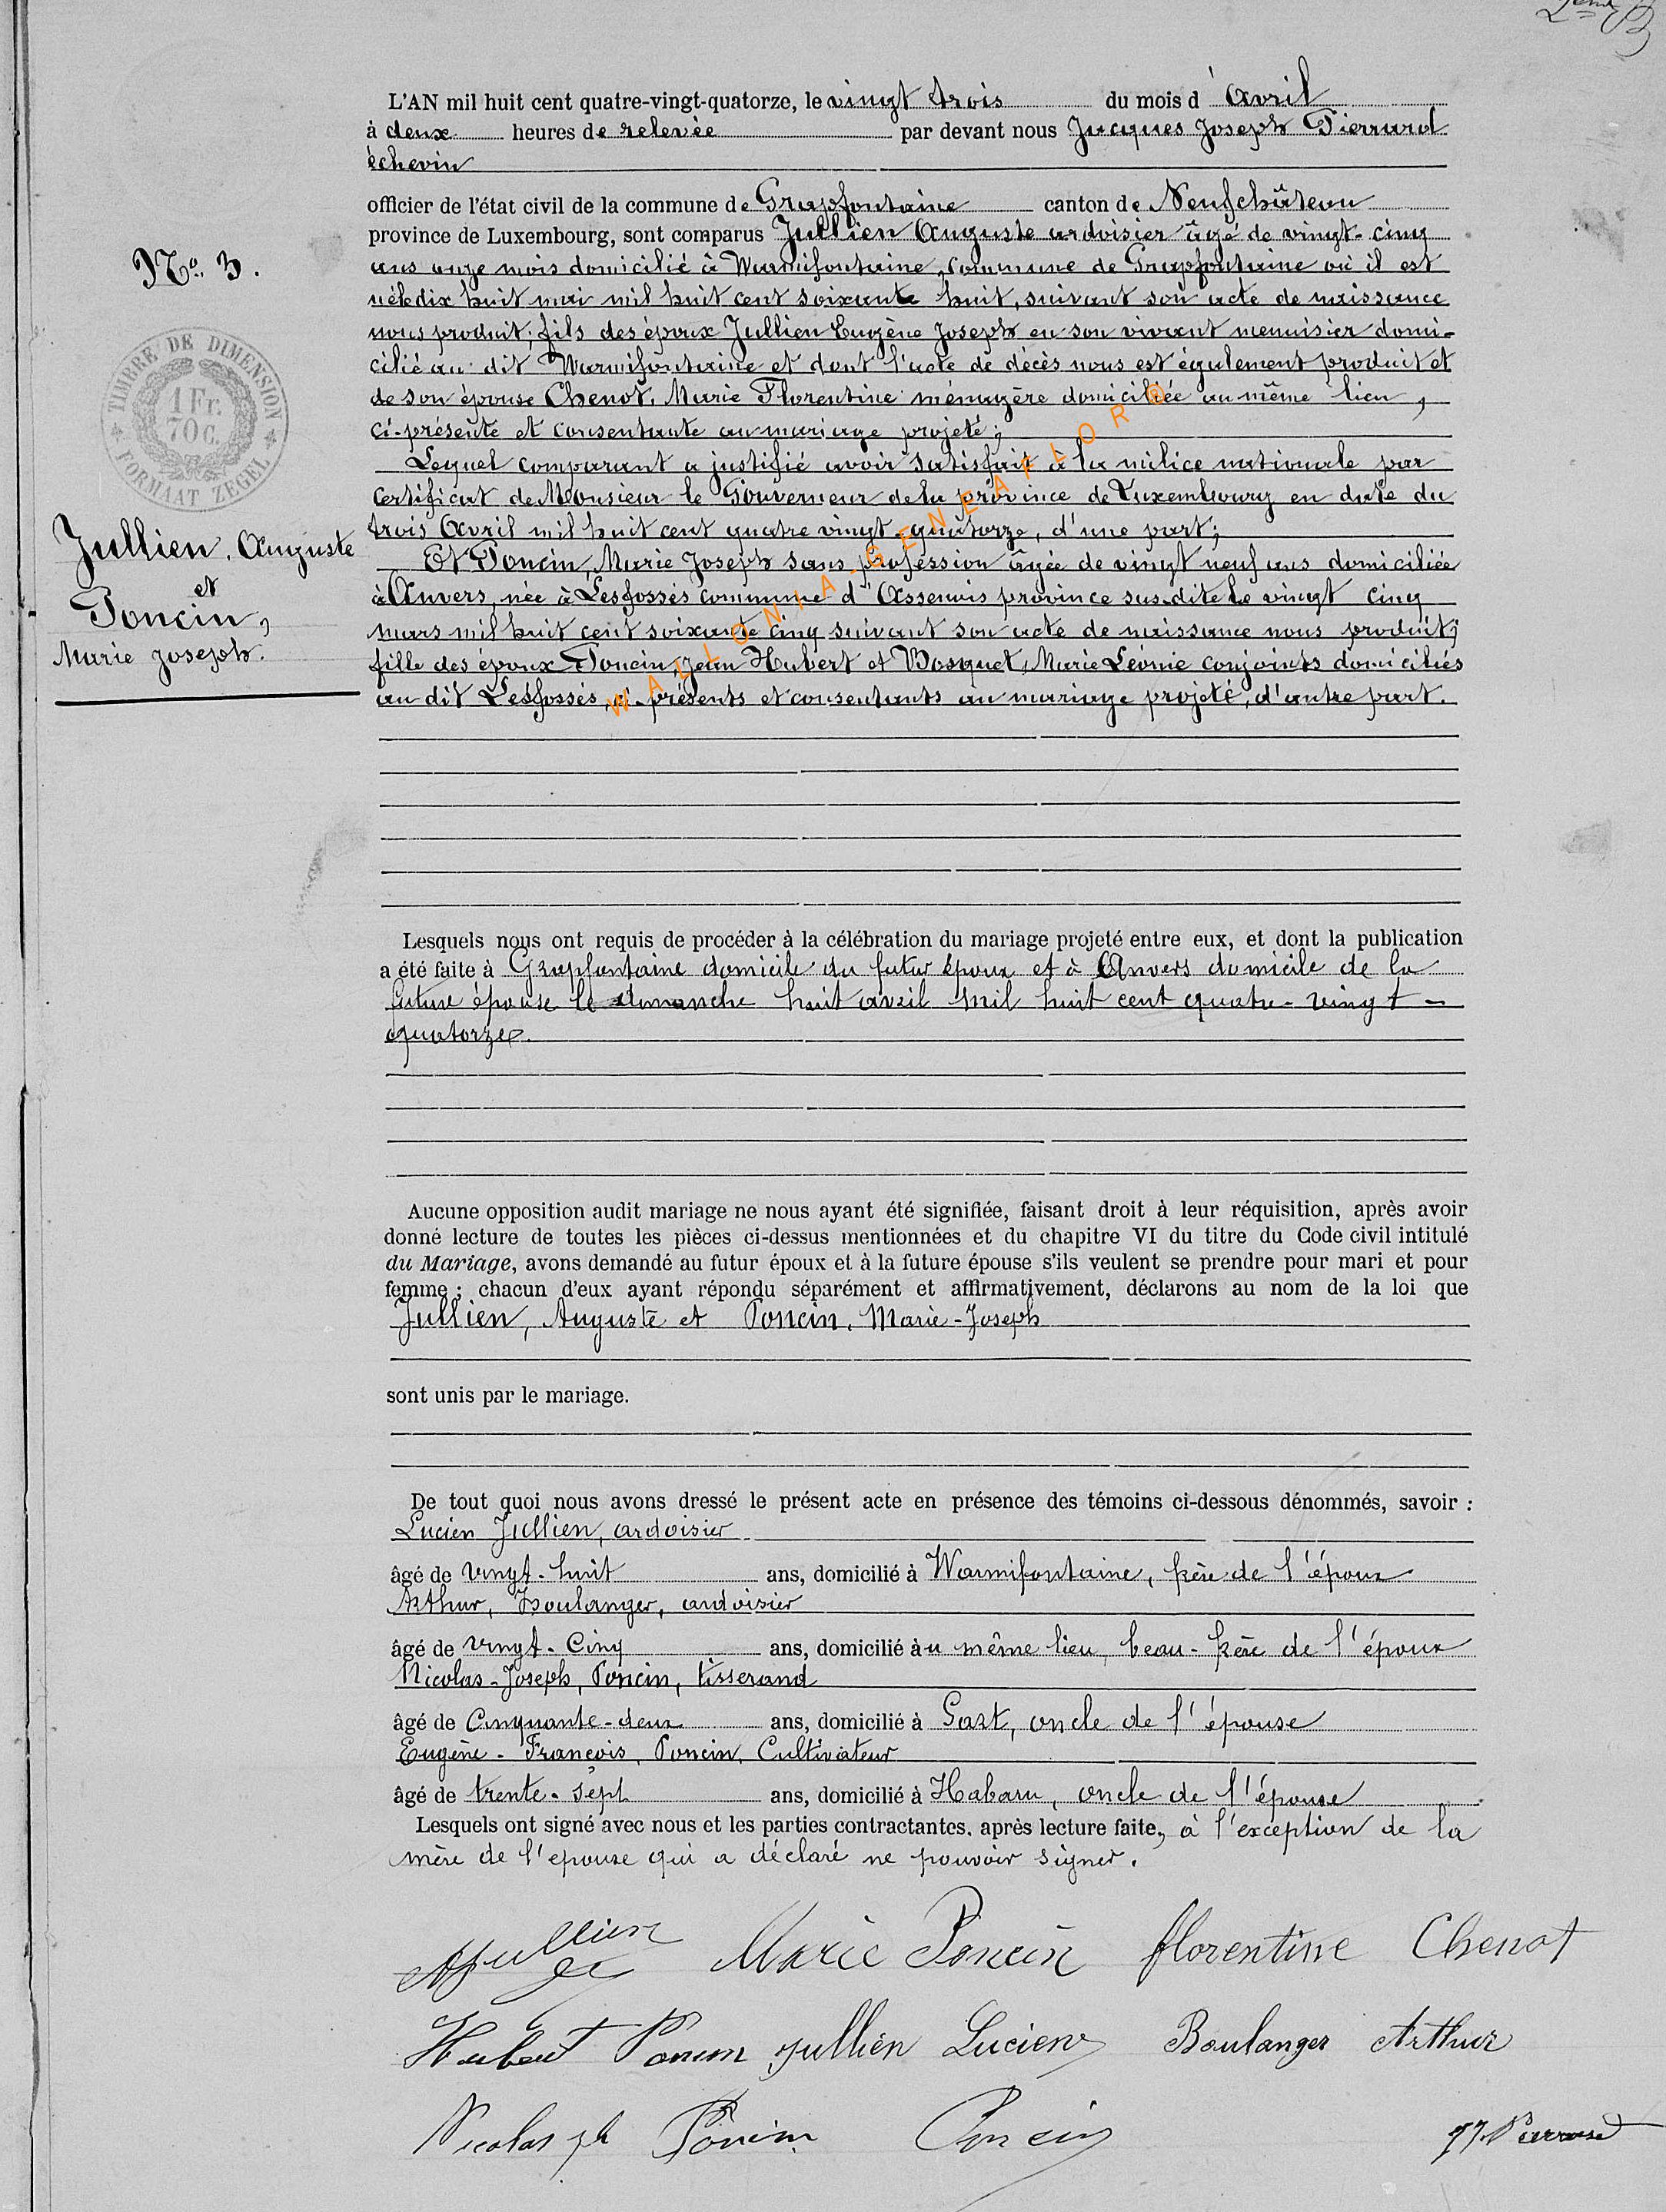 2ème B
L'AN mil huit cent quatre-vingt-quatorze, le vingt trois du mois d'Avril
à deux heures de relevée par devant nous Jacques Joseph Pierrard
échevin
officier de l'état civil de la commune de Grapfontaine canton de Neufchâteau
province de Luxembourg, sont comparus Jullien Auguste ardoisier âgé de vingt-cinq
ans onze mois domicilié à Warmifontaine, commune de Grapfontaine où il est
né le dix huit mai mil huit cent soixante huit, suivant son acte de naissance
nous produit; fils des époux Jullien Eugène Joseph en son vivant menuisier domi-
cilié au dit Warmifontaine et dont l'acte de décès nous est également produit et
de son épouse Chenot, Marie Florentine ménagère domiciliée au même lieu,
ci-présente et consentante au mariage projeté;
Lequel comparant a justifié avoir satisfait à la milice nationale par
certificat de Monsieur le Gouverneur de la province de Luxembourg en date du
trois Avril mil huit cent quatre vingt-quatorze, d'une part;
Et Poncin, Marie Joseph sans profession âgée de vingt neuf ans domiciliée
à Anvers, née à Lesfossés commune d'Assenois province sus-dite le vingt cinq
mars mil huit cent soixante cinq suivant son acte de naissance nous produit;
fille des époux Poncin, Jean Hubert et Bosquet, Marie Léonie conjoints domiciliés
au dit Lesfossés, ci-présents et consentants au mariage projeté, d'autre part.
No. 3.
TIMBRE DE DIMENSION
1 Fr.
70 C.
FORMAAT ZEGEL
Jullien, Auguste
et
Poncin,
Marie Joseph.
WALLONIA-GENEAFLOR®
Lesquels nous ont requis de procéder à la célébration du mariage projeté entre eux, et dont la publication
a été faite à Grapfontaine domicile du futur époux et à Anvers domicile de la
future épouse le dimanche huit avril mil huit cent quatre-vingt-
quatorze.
Aucune opposition audit mariage ne nous ayant été signifiée, faisant droit à leur réquisition, après avoir
donné lecture de toutes les pièces ci-dessus mentionnées et du chapitre VI du titre du Code civil intitulé
du Mariage, avons demandé au futur époux et à la future épouse s'ils veulent se prendre pour mari et pour
femme; chacun d'eux ayant répondu séparément et affirmativement, déclarons au nom de la loi que
Jullien, Auguste et Poncin, Marie-Joseph
sont unis par le mariage.
De tout quoi nous avons dressé le présent acte en présence des témoins ci-dessous dénommés, savoir :
Lucien Jullien, ardoisier
âgé de vingt-huit ans, domicilié à Warmifontaine, frère de l'époux
Arthur, Boulanger, ardoisier
âgé de vingt-cinq ans, domicilié au même lieu, beau-frère de l'époux
Nicolas-Joseph, Poncin, tisserand
âgé de cinquante-deux ans, domicilié à Sart, oncle de l'épouse
Eugène-François, Poncin, Cultivateur
âgé de trente-sept ans, domicilié à Habaru, oncle de l'épouse
Lesquels ont signé avec nous et les parties contractantes, après lecture faite, à l'exception de la
mère de l'épouse qui a déclaré ne pouvoir signer.
AJullien Marie Poncin florentine Chenot
Hubert Poncin Jullien Lucien Boulanger Arthur
Nicolas jh Poncin Poncin JJ Pierrard